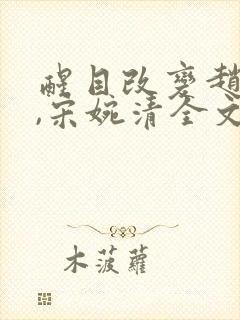 醒目改变趙
,宋婉清全文
木菠蘿